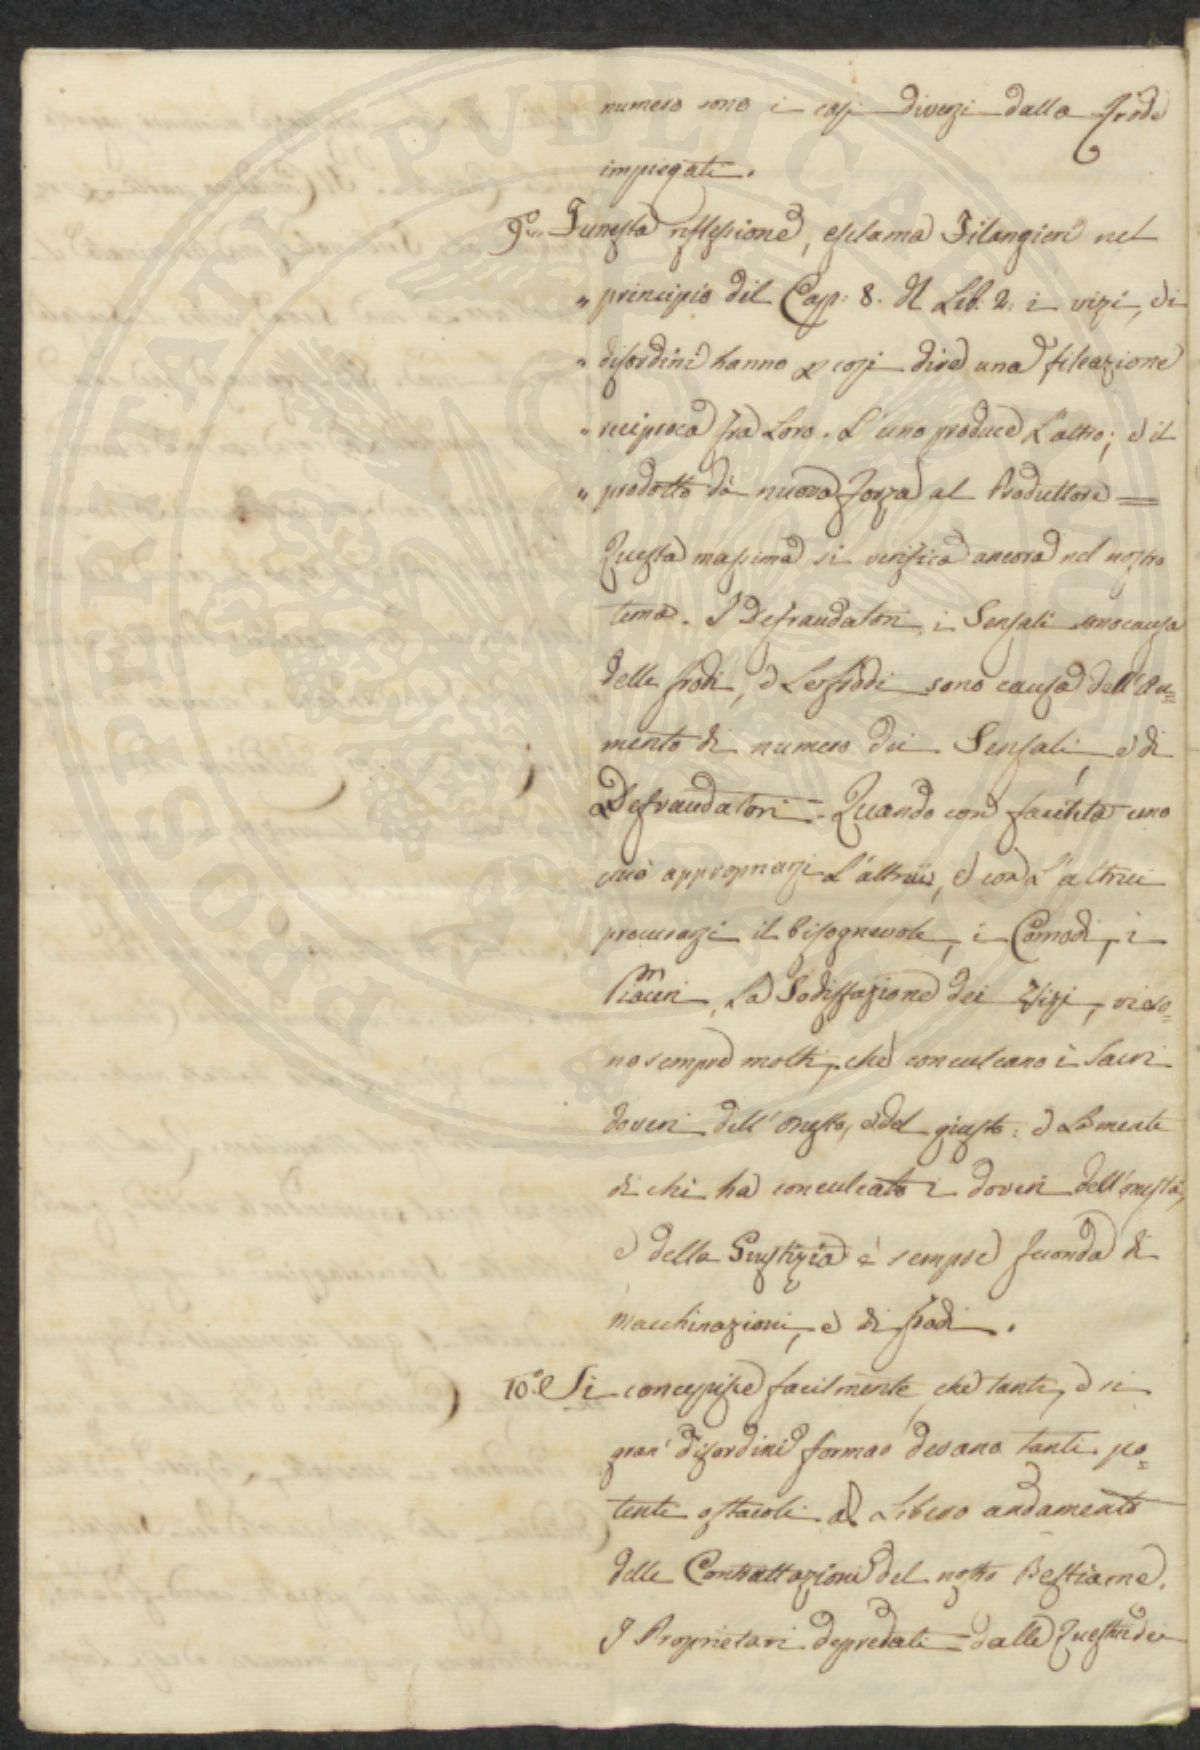 numero sono i casi diversi dalla Frode
impiegati.
9.º „ Funesta riflessione, esclama Filangieri nel
„ principio del Cap: 8. del Lib. 2. i vizi, di
„ disordini hanno p cosi dire una filiazione
„ reciproca frà Loro. L'uno produce L'altro; e il
„ prodotto dà nuova forza al Produttore =
Questa massima si verifica ancora nel nostro
tema. I Defraudatori, i Sensali sono causa
delle frodi, e Le frodi sono causa dell'Au=
mento di numero dei Sensali, e di
Defraudatori. Quando con facilità uno
può appropriarsi L'altrui, e con L'altrui
procurarsi il bisognevole, i Comodi, i
Piaceri, La Sodisfazione dei Vizi, vi so=
no sempre molti, che conculcano i Sacri
doveri dell'onesto, e del giusto: e La mente
di chi hà conculcato i doveri dell'onestà,
e della Giustizia è sempre feconda di
macchinazioni, e di frodi.
10.º Si concepisce facilmente, che tanti, e si
gran' disordini formar devano tanti po=
tenti ostacoli al Libero andamento
delle Contrattazioni del nostro Bestiame.
I Proprietari depredati dalle
PROSPERITATI PVBLICAE